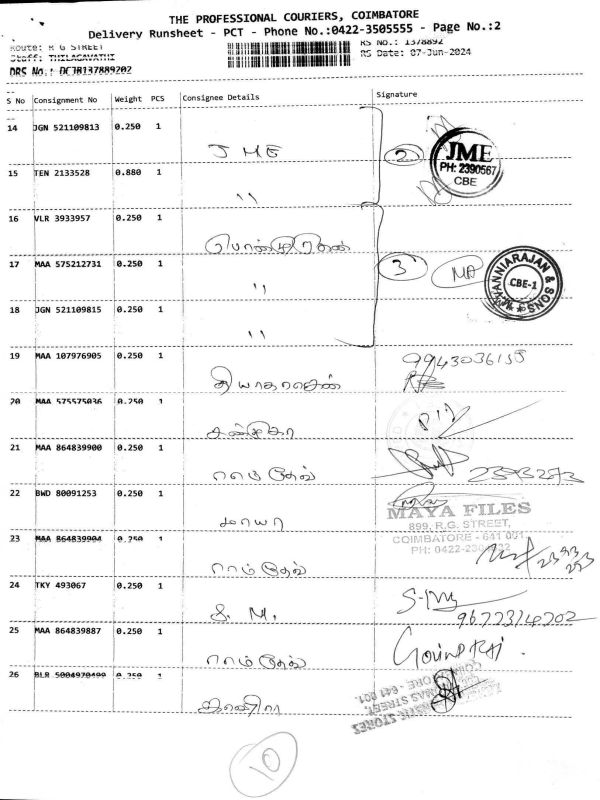 THE PROFESSIONAL COURIERS, COIMBATORE
Delivery Runsheet - PCT - Phone No.:0422-3505555 - Page No.:2
Route: R G STREET
RS No.: 1378892
Staff: THILAGAVATHI
RS Date: 07-Jun-2024
DRS No.: DCJB137889202
S No Consignment No Weight PCS Consignee Details Signature
14 JGN 521109813 0.250 1 JME 2
JME
PH: 2390567
CBE
15 TEN 2133528 0.880 1 "
16 VLR 3933957 0.250 1
17 MAA 575212731 0.250 1 " 3
M.VANNIARAJAN & SONS
CBE-1
18 JGN 521109815 0.250 1 "
19 MAA 107976905 0.250 1 தியாகராசன்
20 MAA 575575036 0.250 1
21 MAA 864839900 0.250 1 ராம்தேவ்
22 BWD 80091253 0.250 1 மாயா
MAYA FILES
899, R.G. STREET,
COIMBATORE - 641 001.
PH: 0422-
23 MAA 864839904 0.250 1 ராம்தேவ்
24 TKY 493067 0.250 1 S. M.
25 MAA 864839887 0.250 1 ராம்தேவ் Govind RAJ.
26 BLR 5004970499 0.250 1
10